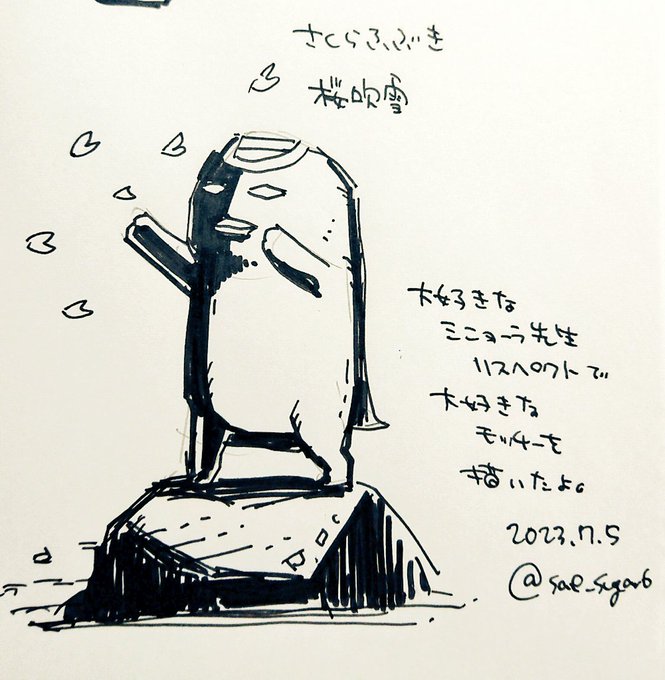 さくらふぶき
桜吹雪
大好きな
ミニョーラ先生
リスペクトで
大好きな
モッチーを
描いたよ。
2023.7.5
@sae_sugar6